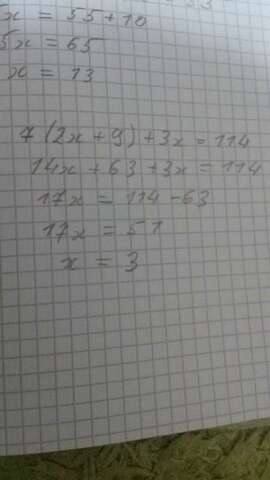 5x = 55+10
5x = 65
x = 13
7(2x+9)+3x=114
14x+63+3x=114
17x=114-63
17x=51
x=3